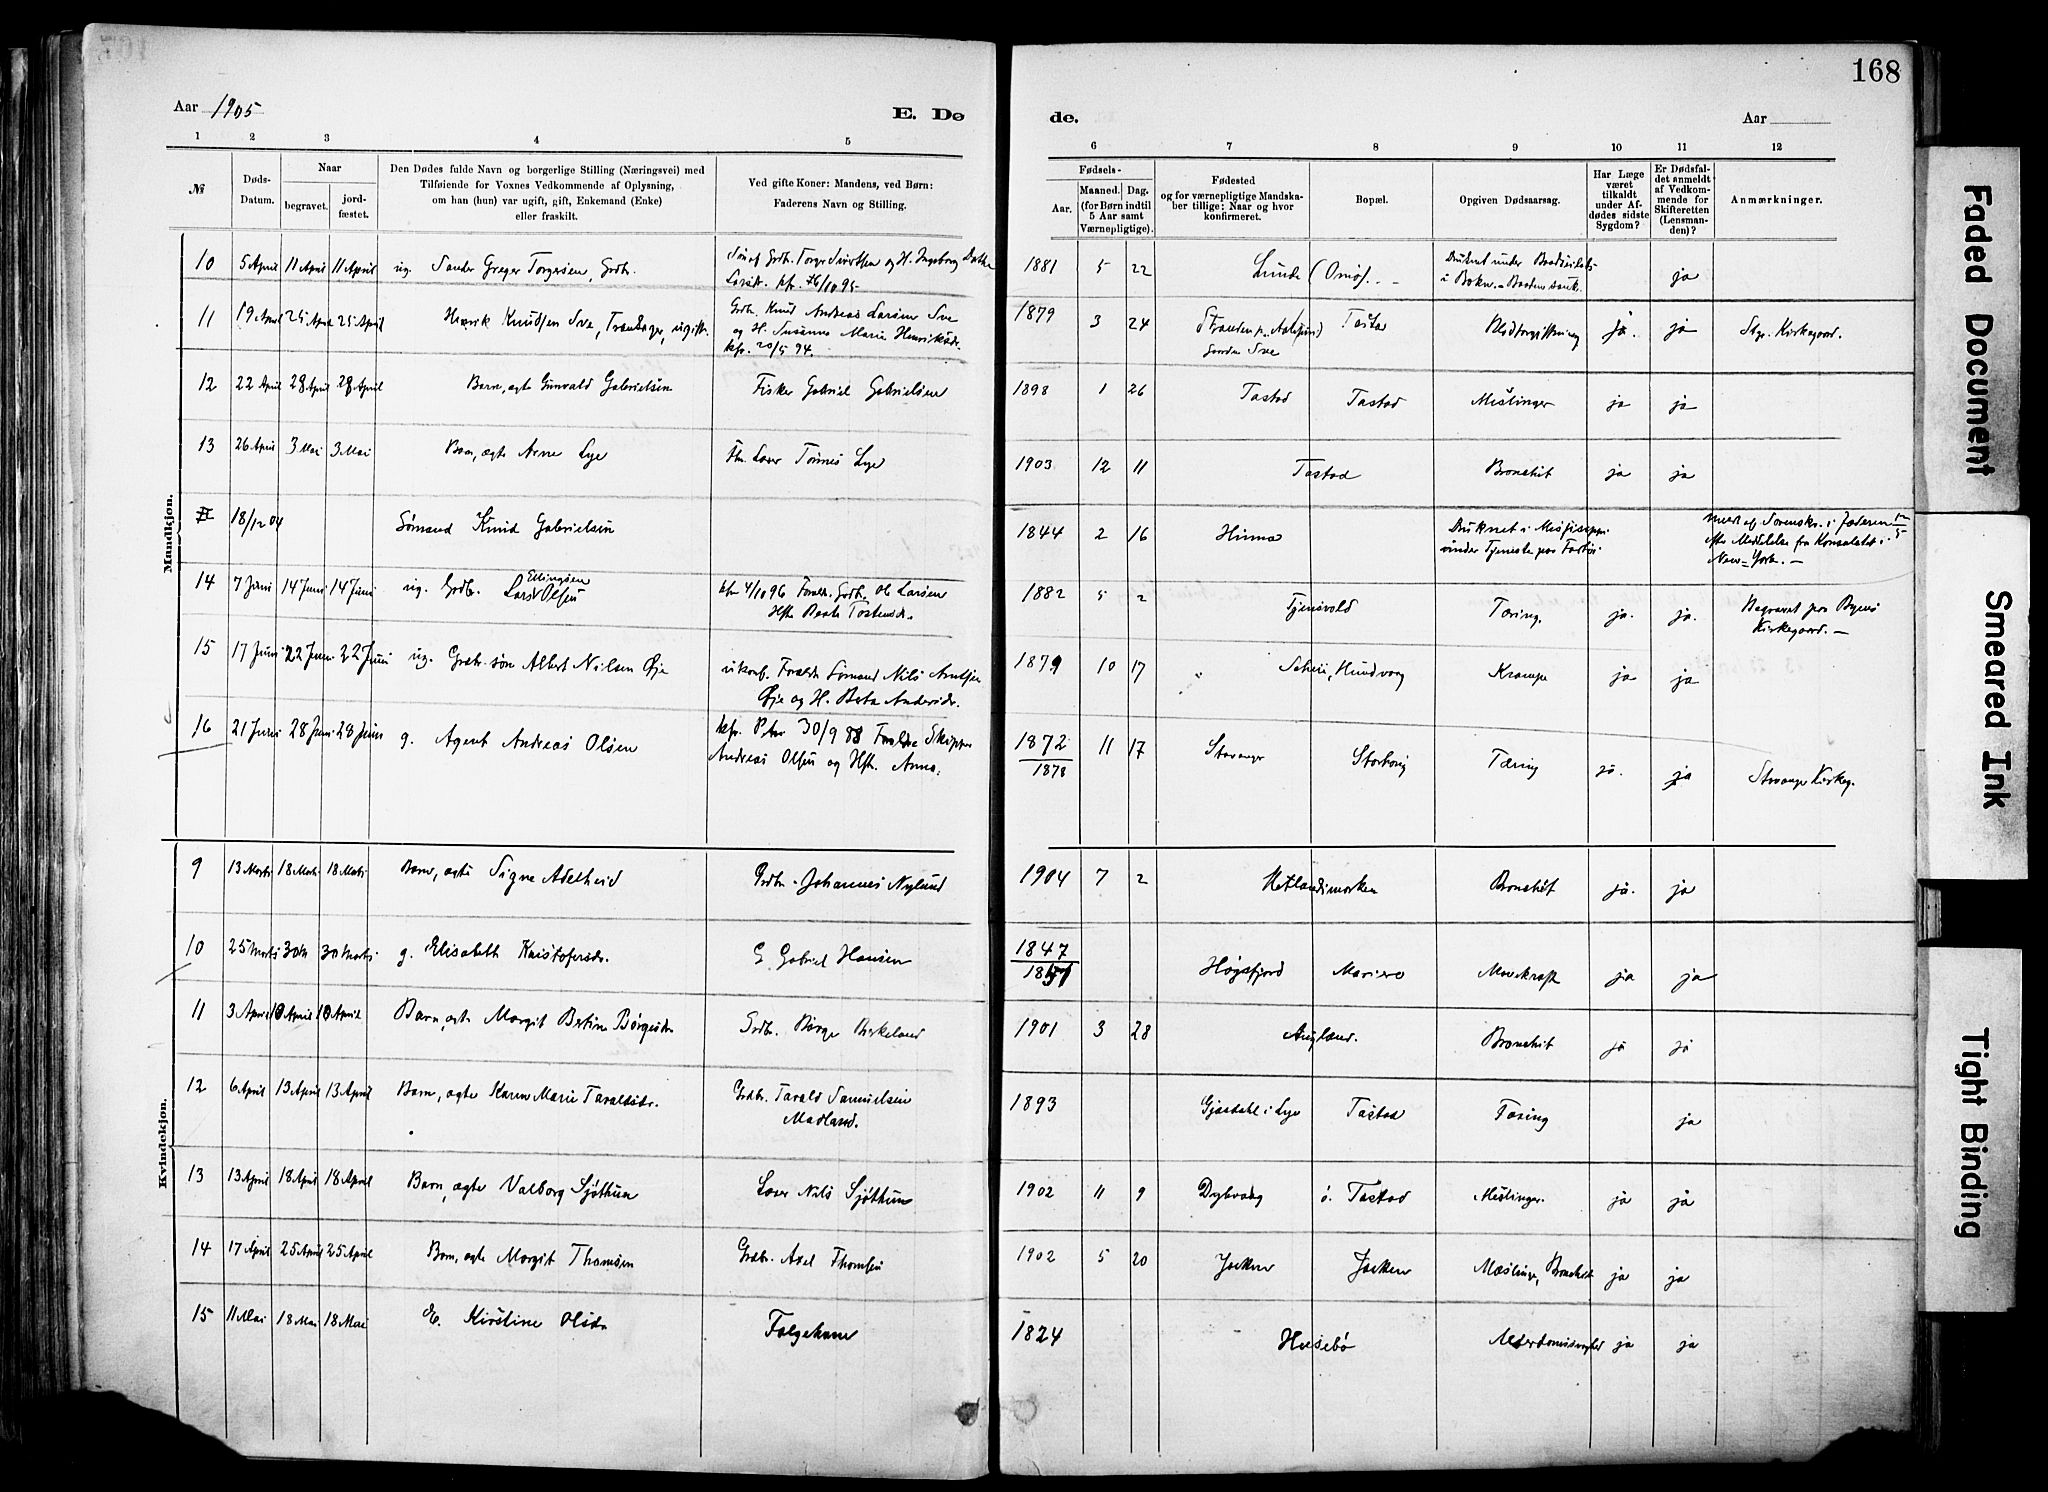 168
Aar 1905
E. Dø
de.
Aar
1 2 3 4 5
6 7 8 9 10 11 12
№
Døds-Datum.
Naar
begravet.
jord-fæstet.
Den Dødes fulde Navn og borgerlige Stilling (Næringsvei) med
Tilføiende for Voxnes Vedkommende af Oplysning,
om han (hun) var ugift, gift, Enkemand (Enke)
eller fraskilt.
Ved gifte Koner: Mandens, ved Børn:
Faderens Navn og Stilling.
Fødsels-
Aar.
Maaned. Dag.
(for Børn indtil
5 Aar samt
Værnepligtige).
Fødested
og for værnepligtige Mandska-
ber tillige: Naar og hvor
konfirmeret.
Bopæl.
Opgiven Dødsaarsag.
Har Læge
været
tilkaldt
under Af-
dødes sidste
Sygdom?
Er Dødsfal-
det anmeldt
af Vedkom-
mende for
Skifteretten
(Lensman-
den)?
Anmærkninger.
Mandkjøn.
10 5 April 11 April 11 April ug. Sander Greger Torgersen, Grdb. 1881 5 22 Lunde ja
11 19 April 25 April 25 April Henrik Knudsen Sve, ugift.
Grdb. Knud Andreas Larsen Sve
og H. Susanna Marie Henriksdr.
kfr. 20/5 94.
1879 3 24 Tastad Blodforgiftning ja. ja Stgr. Kirkegaard.
12 22 April 28 April 28 April Barn, ægte Gunvald Gabrielsen Fisker Gabriel Gabrielsen 1898 1 26 Tastad Tastad Meslinger ja ja
13 26 April 3 Mai 3 Mai Barn, ægte Arne Lye Tønnes Lye 1903 12 11 Tastad Bronchit ja ja
18/12 04 Sømand Knud Gabrielsen 1844 2 16 Hinna
Druknet i Missisippi
under Tjeneste paa
efter Meddelelse fra Konsulatet i
New-York.
14 7 Juni 14 Juni 14 Juni ug. Grdb. Lars Ellingsen Olsen
4/10 96 Foreldr. Grdb. Ole Larsen
1882 5 2 Tjensvold Tæring. ja. ja.
Begravet paa Byens
Kirkegaard.
15 17 Juni 22 Juni 22 Juni ug. Grdbr. søn Albert Nilsen Øje
ukonf. Foreldre Sømand Nils
Øje og H. Berta Andersdr.
1879 10 17 Hundvaag Krampe ja ja
16 21 Juni 28 Juni 28 Juni g. Agent Andreas Olsen
30/9 88 Skipper
Andreas Olsen og Hstr. Anna.
1872
1878
11 17 Stavanger Storhaug Tæring ja. ja Stavanger Kirkeg.
Kvindekjøn.
9 13 Marts 18 Marts 18 Marts Barn, ægte Signe Adelheid Grdbr. Johannes Nylund 1904 7 2 Hetlandsmarken Bronchit ja. ja
10 25 Marts 30 M 30 Marts g. Elisabeth Kristofersdr. G. Gabriel Hansen
1847
1851
Høgsfjord Mariero Mavekræft ja ja
11 3 April 10 April 10 April Barn, ægte Margit Bertine Børgesdr. Grdb. Børge Birkeland 1901 3 28 Augland. Bronchit ja ja
12 6 April 13 April 13 April Barn, ægte Karen Marie Taraldsdr.
Grdbr. Tarald Samuelsen
Madland.
1893 Gjesdahl i Lye Tastad Tæring ja
13 13 April 18 April 18 April Barn, ægte Valborg Sjøthun Nils Sjøthun 1902 11 9 Dybvaag ø. Tastad Meslinger. ja ja
14 17 April 25 April 25 April Barn, ægte Margit Thomsen Grdbr. Axel Thomsen 1902 5 20 Jaatten Jaatten Meslinger, Bronchit ja ja
15 11 Mai 18 Mai 18 Mai E. Kirstine Olsdr. Følgekone 1824 Husebø Alderdomssvaghed ja ja
Faded Document
Smeared Ink
Tight Binding